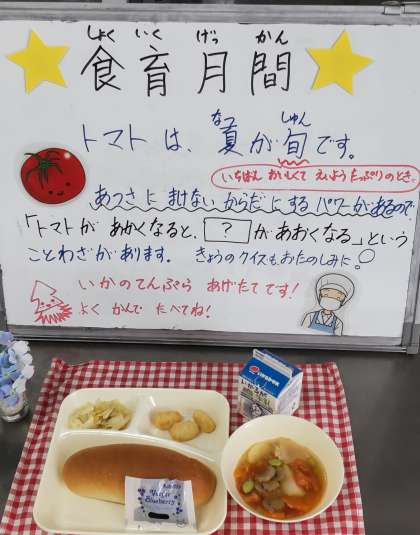 しょく いく げっ かん
食育月間
なつ しゅん
トマトは、夏が旬です。
いちばん おいしくて えいようたっぷりのとき。
あつさに まけない からだに する パワーが あるので
「トマトが あかくなると、?が あおくなる」という
ことわざが あります。 きょうの クイズも おたのしみに。
いかの てんぷら あげたてです!
よく かんで たべてね!
Blueberry